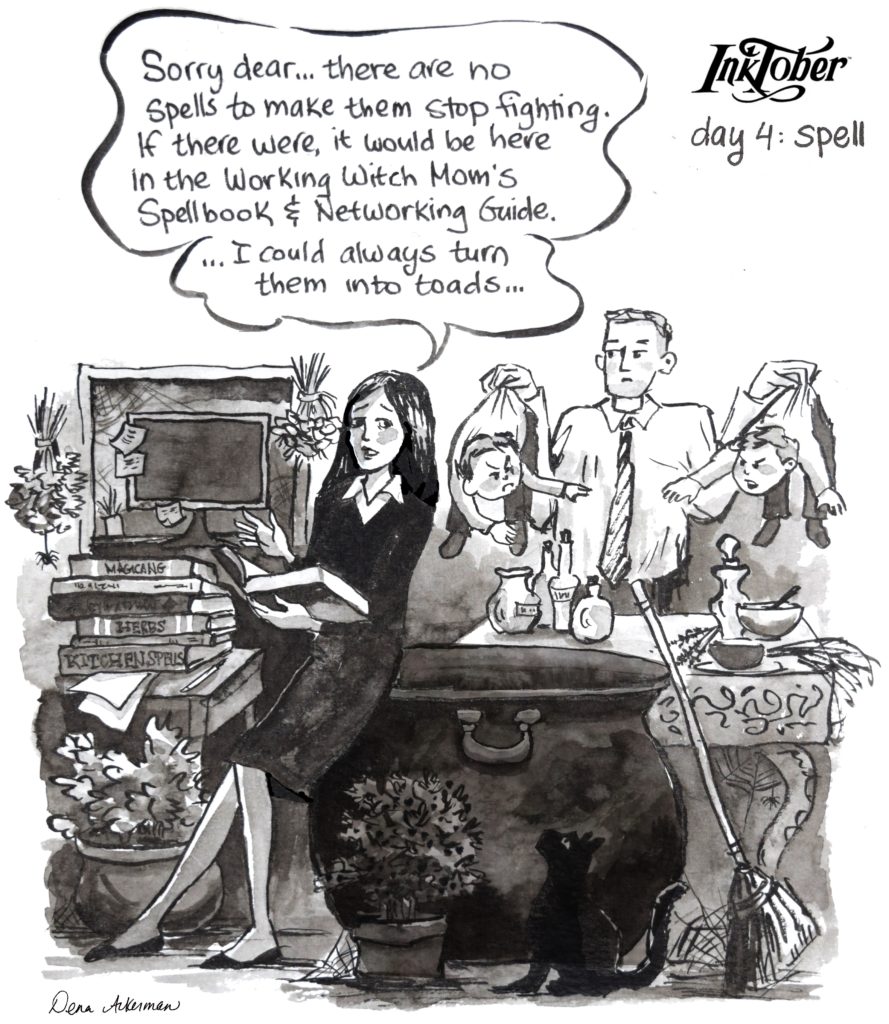 Sorry dear... there are no
spells to make them stop fighting.
If there were, it would be here
in the Working Witch Mom's
Spellbook & Networking Guide.
...I could always turn
them into toads...
InkTober
day 4: spell
MAGICANG
HERBS
KITCHEN SPELLS
Dena Ackerman